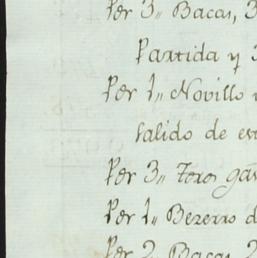 Per 3,, Bacas, 3
Partida y 3
Per 1,, Novillo
salido de es
Per 3,, toros gas
Per 1,, Bezerro d
Per 2 Bacas 2